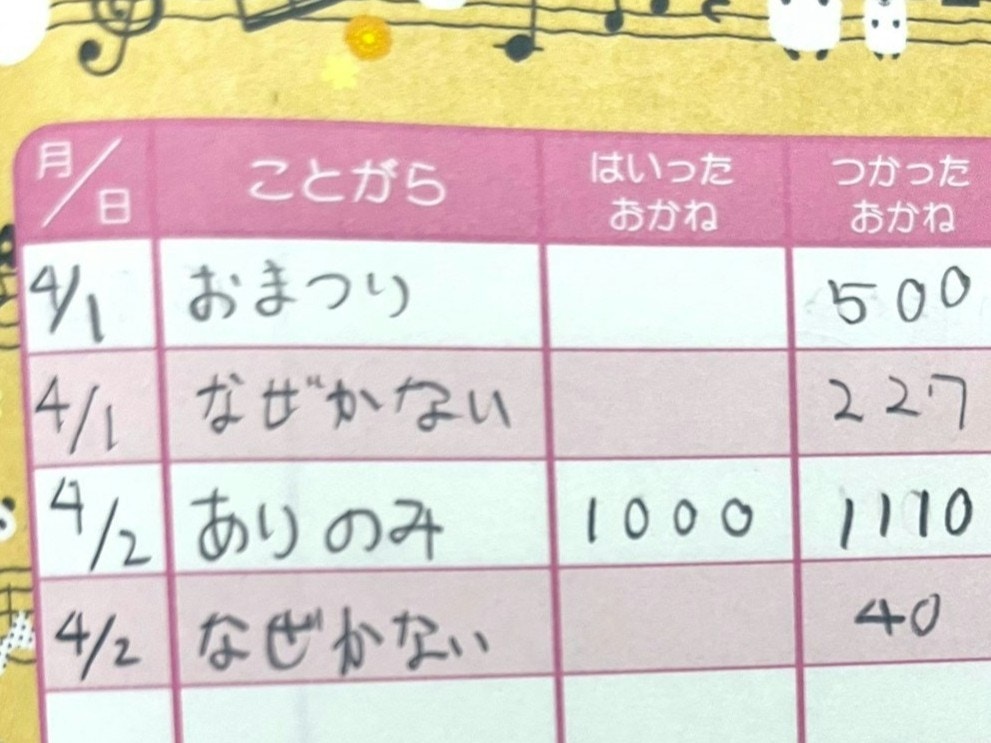 月/日 ことがら はいったおかね つかったおかね
4/1 おまつり 500
4/1 なぜかない 227
4/2 ありのみ 1000 1110
4/2 なぜかない 40